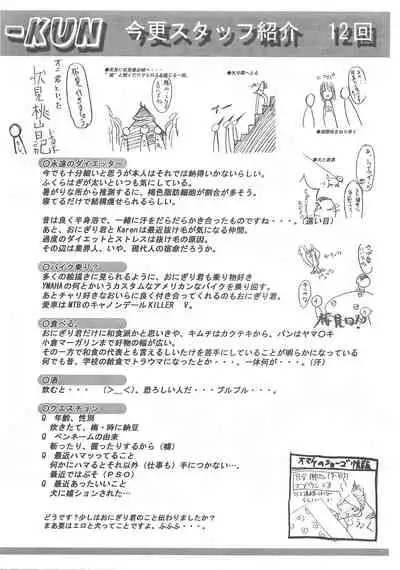 -KUN 今更スタッフ紹介 12回
伏見桃山日記
〇永遠のダイエッター
今でも十分細いと思うが本人はそれでは納得いかないらしい。
ふくらはぎが太いといつも気にしている。
暑がりな所から推測するに、褐色脂肪細胞が割合が多そう。
寝てるだけで結構痩せられるらしい。
昔は良く半身浴で、一緒に汗をだらだらかき合ったものですね・・・。（遠い目）
あと、おにぎり君とKarenは最近抜け毛が気になる仲間。
過度のダイエットとストレスは抜け毛の原因。
その辺は業界人、いや、現代人の宿命だろうか。
〇バイク乗り？
多くの絵描きに見られるように、おにぎり君も乗り物好き
YMAHAの何とかいうカスタムなアメリカンなバイクを乗り回す。
あとチャリ好きなおいらに良く付き合ってくれるのもおにぎり君。
愛車はMTBのキャノンデールKILLER V。
〇食べる。
おにぎり君だけに和食派かと思いきや、キムチはカウテキから、パンはヤマ〇キ
小倉マーガリンまで好物の幅が広い。
その一方で和食の代表とも言えるしいたけを苦手にしていることが明らかになっている
何でも昔、学校の給食でトラウマになったとか・・・。一体何が・・・。（汗）
〇酒
飲むと・・・（＞＿＜）、恐ろしい人だ・・・ブルブル・・・。
〇クエスチョン
Q 年齢、性別
炊きたて、梅・時に納豆
Q ペンネームの由来
斬ったり、握ったりするから（嘘）
Q 最近ハマッってること
何かにハマるとそれ以外（仕事も）手につかない…。
最近ではぷそ（ＰＳＯ）
Q 最近あったいいこと
犬に嘘ションされた…
どうです？少しはおにぎり君のこと伝わりましたか？
まあ要はエロと犬ってことですよ。ふふふ・・・。